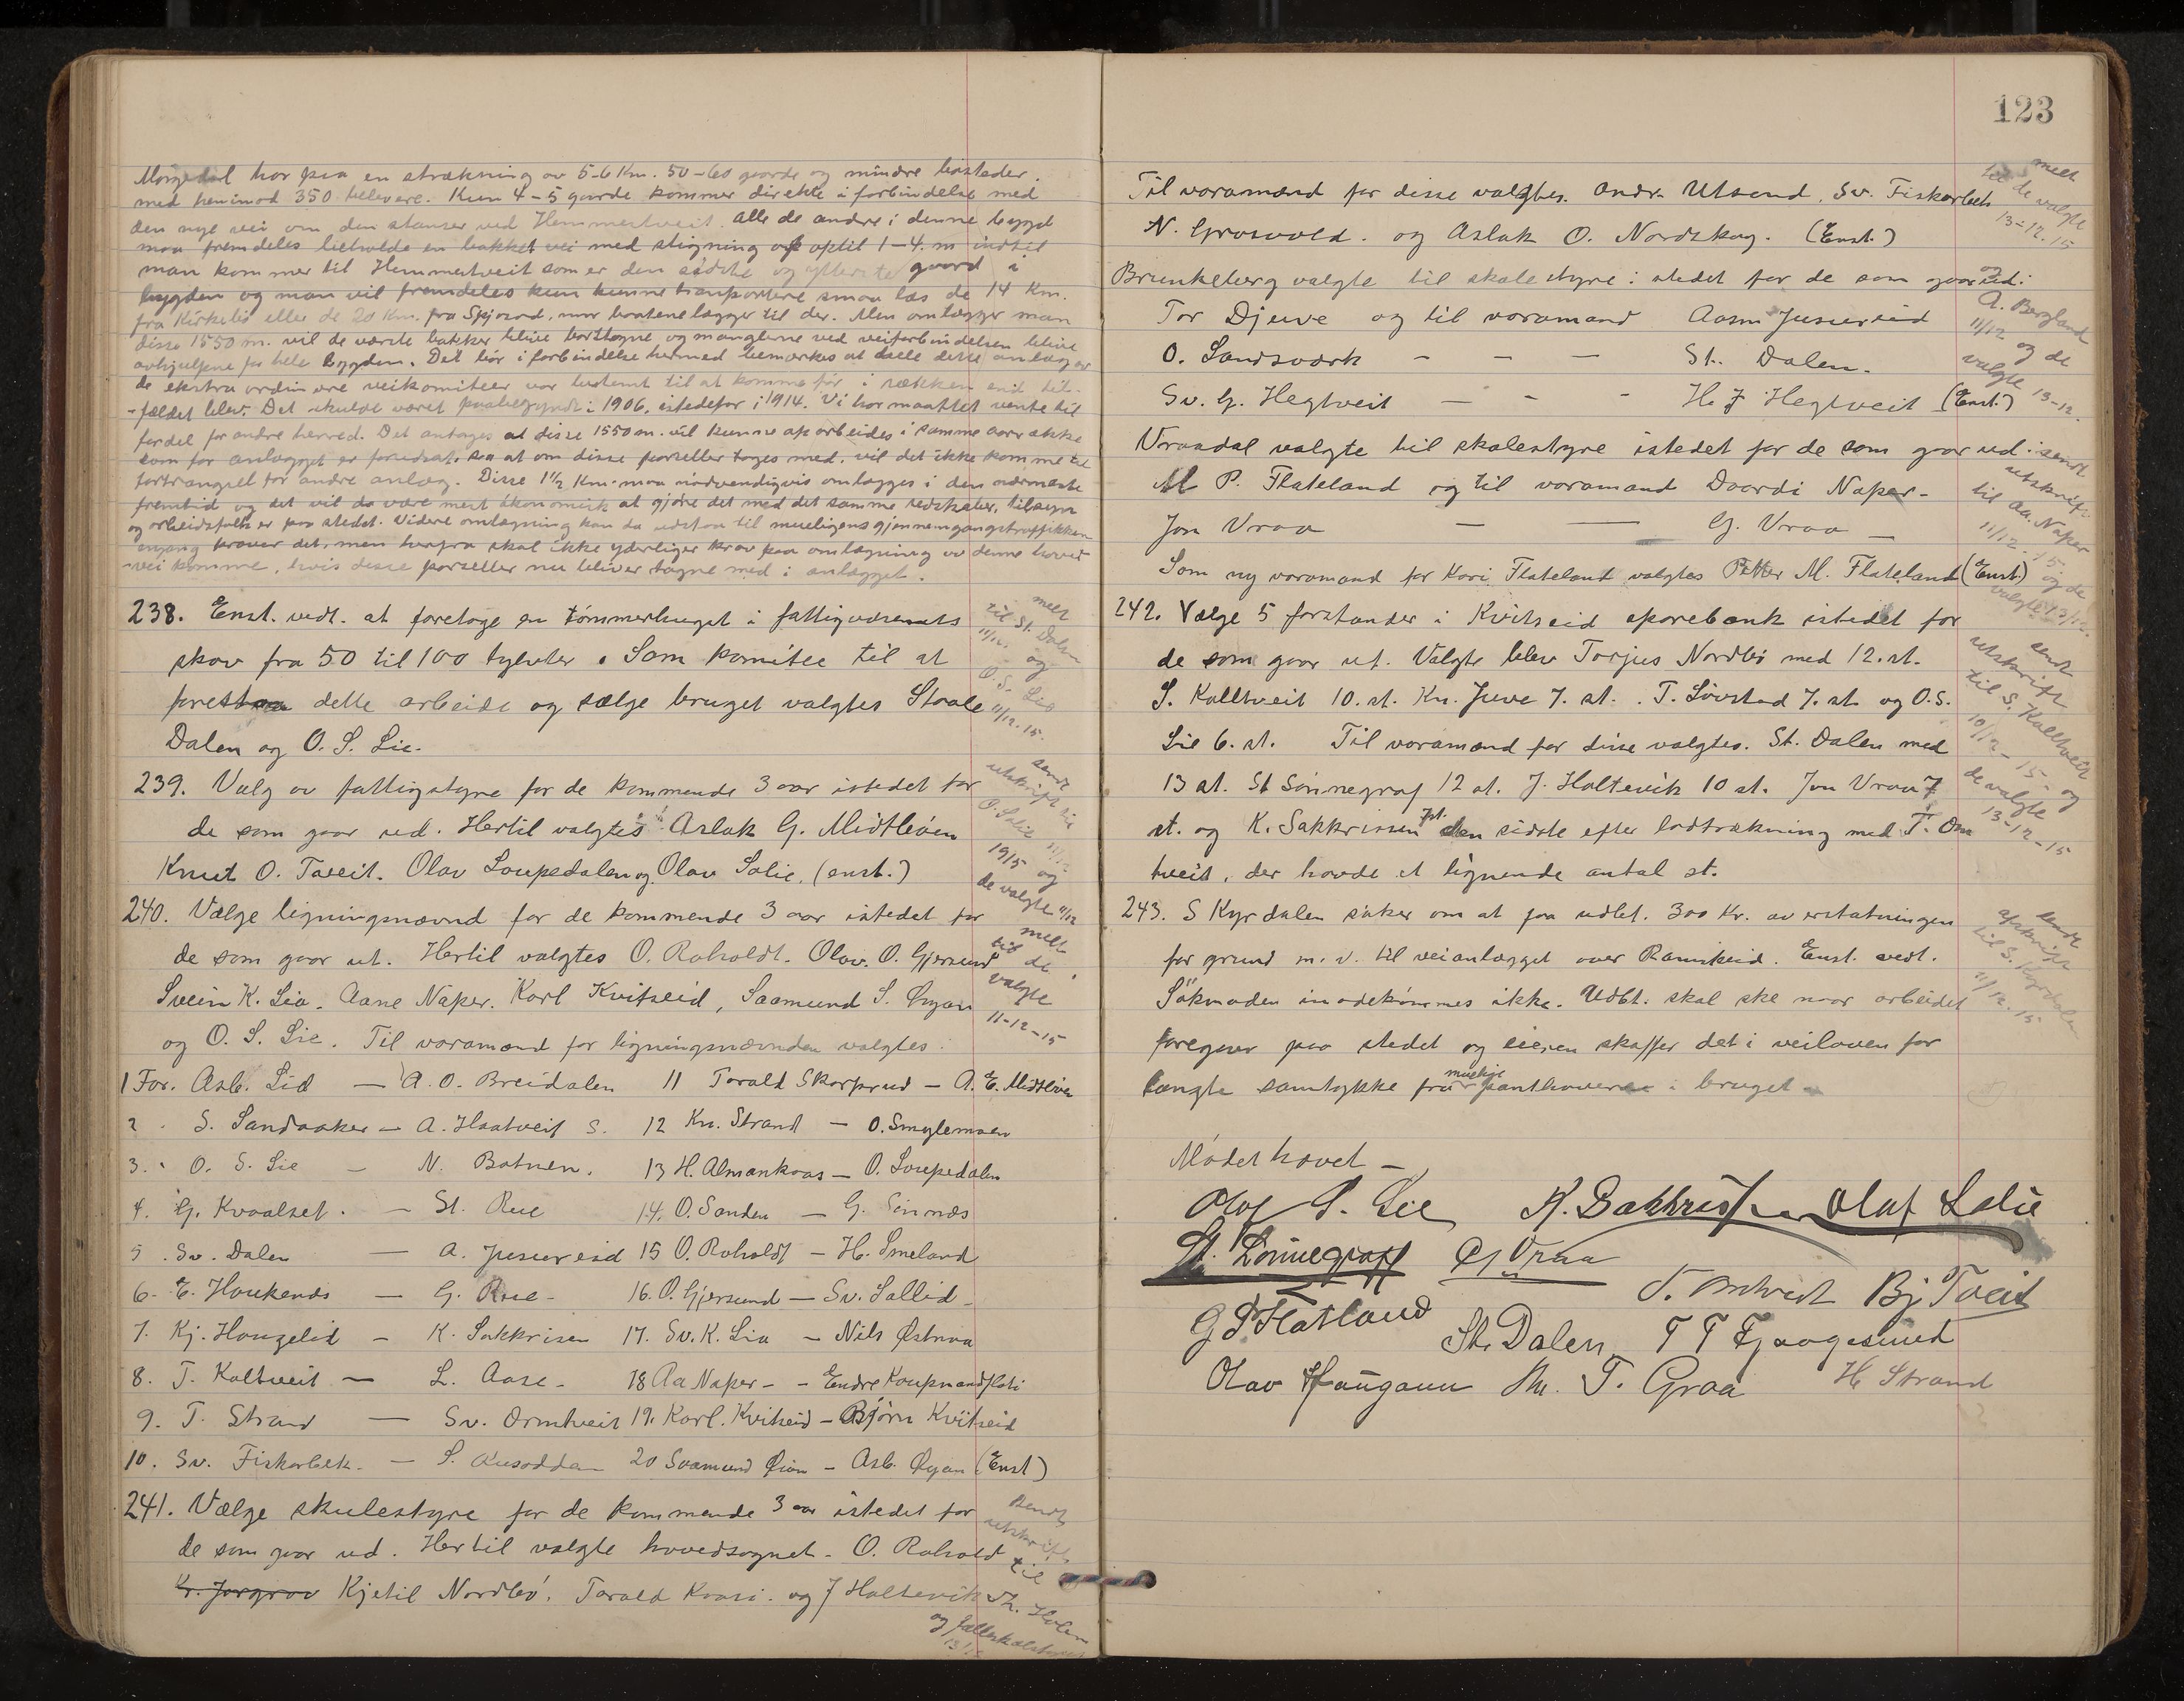 Morgedal har paa en strækning av 5-6 Km. 50-60 gaarde og mindre bosteder.
med henimod 350 beboere. Kun 4-5 gaarde kommer direkte i forbindelse med
den nye vei om den stanser ved Hemmestveit. Alle de andre i denne bygd
maa fremdeles beholde en bakket vei med stigning optil 1-4. m indtil
man kommer til Hemmestveit som er den sidste og ytterste gaard i
bygden og man vil fremdeles kun kunne transportere smaa læs de 14 Km.
fra Kirkebø eller de 20 Km. fra Spjosod, naar baatene lægger til der. Men omlægger man
disse 1550 m. vil de værste bakker blive borttagne, og manglerne ved veiforbindelsen blive
avhjulpne for hele bygden. Det bør i forbindelse hermed bemærkes at dette anlæg av
de ekstraordinære veikomiteer var bestemt til at komme før i rækken end til-
-fældet blev. Det skulde været paabegyndt i 1906, istedefor i 1914. Vi har maattet vente til
fordel for andre herred. Det antages at disse 1550 m. vil kunne oparbeides i samme aarrække
som for anlægget er forudsat, saa at om disse parseller tages med, vil det ikke komme til
fortrængsel for andre anlæg. Disse 1½ Km. maa nødvendigvis omlægges i den nærmeste
fremtid og det vil da være mest økonomisk at gjøre det med det samme redskaber, tilsyn
og arbeidsfolk er paa stedet. Videre omlægning kan da udstaa til mueligens gjennemgangstraffikken
engang kræver det, men herfra skal ikke yderliger krav paa omlægning av denne hoved-
-vei komme, hvis disse parseller nu bliver tagne med i anlægget.
238. Enst. vedt. at foretage en tømmerhugst i fattigvæsenets
skov fra 50 til 100 tylvter. Som komitee til at
forestaa dette arbeide og sælge bruget valgtes Staale
Dalen og O. S. Lie.
melt til St. Dalen 11/12. og O. S. Lie 11/12. 15.
239. Valg av fattigstyre for de kommende 3 aar istedet for
de som gaar ud. Hertil valgtes Aslak G. Midtbøen
Knut O. Tveit. Olav Loupedalen og Olav Solie. (enst.)
sendt utskrift til O. Solie 11/12 1915 og de valgte 11/12
240. Vælge ligningsnævnd for de kommende 3 aar istedet for
de som gaar ut. Hertil valgtes O. Roholdt. Olav. O. Gjersund
Svein K. Lia. Aane Naper. Karl Kvitseid, Saamund S. Øyan
og O. S. Lie. Til varamænd for ligningsnævnden valgtes:
melt til de valgte 11-12-15
1 For. Asb. Lid — A. O. Breidalen 11 Torald Skarprud — A. E. Midtbøen
2. S. Sandaaker — A. Haatveit S. 12 Kn. Strand — O. Smylemoen
3. O. S. Lie — N. Botnen. 13 H. Almankaas — O. Loupedalen
4. G. Kvaalset. — St. Rue 14. O. Sanden — G. Sinnæs
5. Sv. Dalen — A. Jusureid 15 O. Roholdt — H. Smeland
6. E. Haukenæs — G. Rue — 16. O. Gjersund — Sv. Sollid —
7. Kj. Haugelid — K. Sakkrisen 17. Sv. K. Lia — Nils Østraa
8. T. Kaltveit — L. Aase — 18 Aa Naper — Endre Kaupmandflati
9. T. Strand — Sv. Ormtveit 19. Karl. Kvitseid — Bjørn Kvitseid
10. Sv. Fiskarbek. — S. Kusodden 20 Saamund Øian — Asb. Øyan (Enst)
241. Vælge skulestyre for de kommende 3 aar istedet for
de som gaar ud. Hertil valgte hovedsognet. O. Rohold
Kr. Jorgrav Kjetil Nordbø. Torald Kvasi. og J Holtevik
sendt utskrift til Th. Holen og fællesskolestyret
123
Til varamænd for disse valgtes. Andr. Utsund. Sv. Fiskarbek
N. Grosvold. og Aslak O. Nordskog. (Enst.)
melt til de valgte 13-12.15
Brunkeberg valgte til skolestyre i stedet for de som gaar ud:
Tor Djuve og til varamand Aasm Jusureid
O. Landsværk — — — St. Dalen.
Sv. G. Hegtveit — - - H. J Hegtveit (Enst.)
og A. Bergland 11/12 og de valgte 13-12.
Vraadal valgte til skolestyre istedet for de som gaar ud:
M P. Flateland og til varamand Daardi Naper —
Jon Vraa — — G. Vraa —
Som ny varamand for Kari Flateland valgtes Petter M. Flateland (Enst.)
sendt utskrift til Aa. Naper 11/12. 15. og de valgte 13/12.
242. Vælge 5 forstander i Kvitseid sparebank istedet for
de som gaar ut. Valgte blev Torjus Nordbø med 12. st.
S. Kaltveit 10. st. Kn. Juve 7. st. T. Løvstad 7. st. og O. S.
Lie 6. st. Til varamænd for disse valgtes. St. Dalen med
13 st. St Sønnegraf 12 st. J. Holtevik 10 st. Jon Vraa 7
st. og K. Sakkrissen 7 st. den sidste efter lodtrækning med T. Om
tveit, der havde et lignende antal st.
sendt utskrift til S. Kaltveit 10/12-15 og de valgte 13-12-15
243. S Kyrdalen søker om at faa udbt. 300 Kr. av erstatningen
for grund m. v. til veianlægget over Ramskeid. Enst. vedt.
Søknaden imødekømmes ikke. Udbt. skal ske naar arbeidet
foregaar paa stedet og eieren skaffer det i veiloven for
langte samtykke fra muelige panthavere i bruget —
sendt afskrift til S. Kyrdalen 11/12. 15
Mødet hævet —
Olaf S. Lie K. Sakkrissen Olaf Solie
St. Lønnegraff G Vraa
T. Omtveit Bj Tveit
G P Flatland St. Dalen T T Fjaagesund
Olav Haugann Kn. T. Graa H Strand